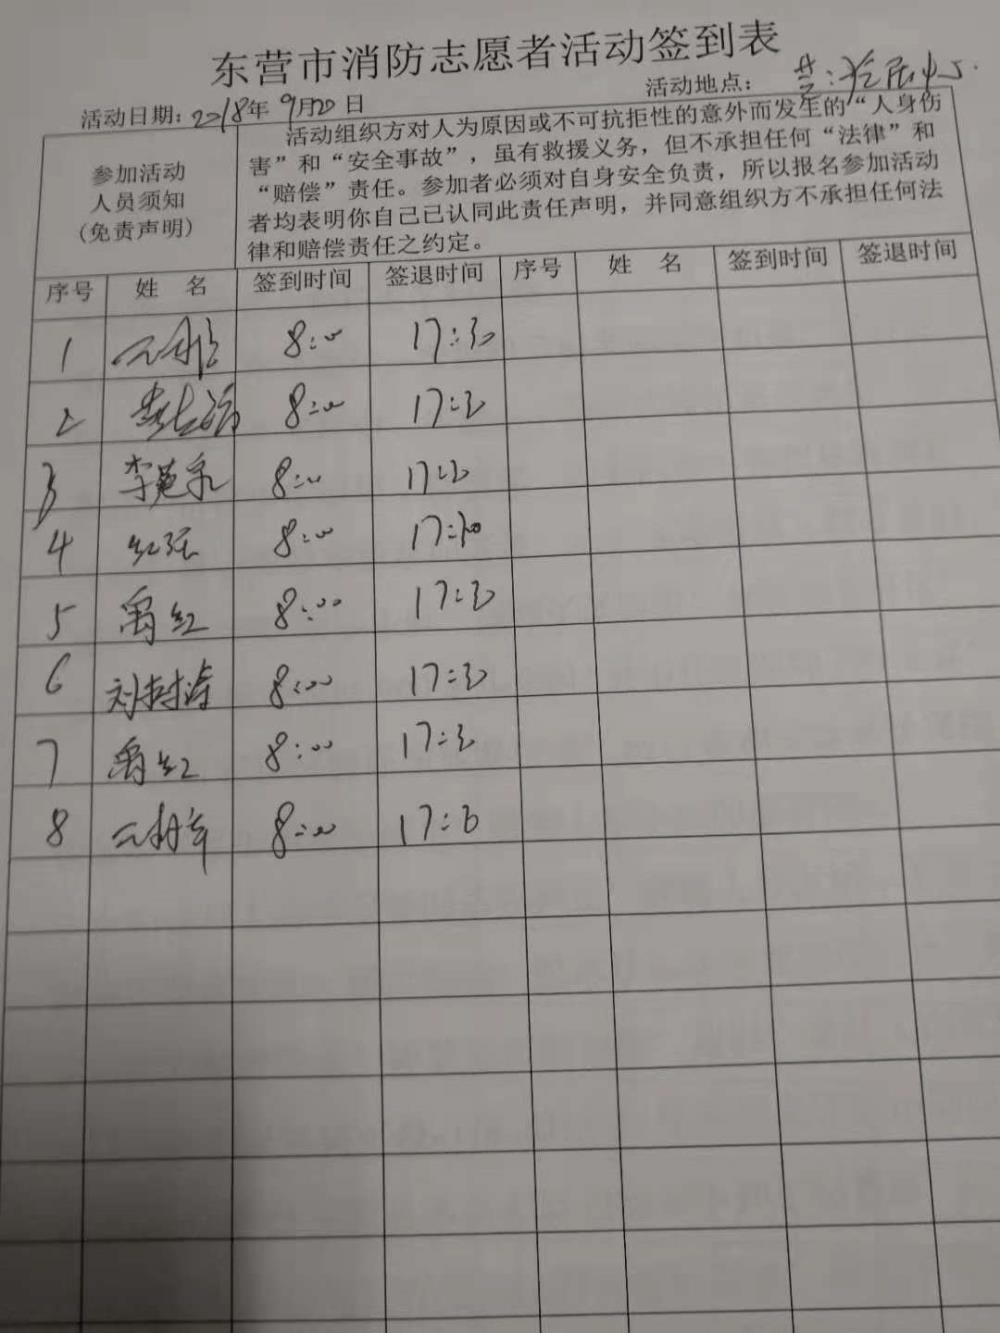 东营市消防志愿者活动签到表
活动日期: 2018年 9月20日 活动地点:
参加活动
人员须知
(免责声明)
活动组织方对人为原因或不可抗拒性的意外而发生的“人身伤
害”和“安全事故”，虽有救援义务，但不承担任何“法律”和
“赔偿”责任。参加者必须对自身安全负责，所以报名参加活动
者均表明你自己已认同此责任声明，并同意组织方不承担任何法
律和赔偿责任之约定。
序号 姓 名 签到时间 签退时间 序号 姓 名 签到时间 签退时间
1 8:00 17:30
2 8:00 17:30
3 8:00 17:30
4 红强 8:00 17:30
5 禹红 8:00 17:30
6 刘树涛 8:00 17:30
7 禹红 8:00 17:30
8 8:00 17:30